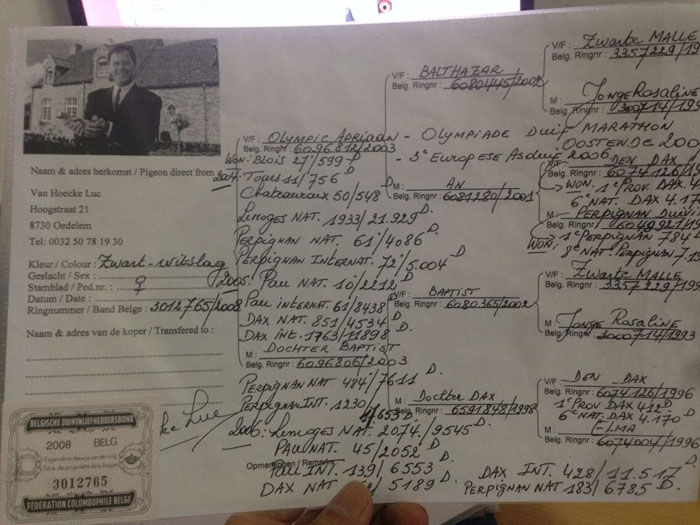 Naam & adres herkomst / Pigeon direct from
Van Hoecke Luc
Hoogstraat 21
8730 Oedelem
Tel: 0032 50 78 19 30
Kleur / Colour : Zwart-witslag
Geslacht / Sex : ♀
Stamblad / Ped.nr. :
Datum / Date :
Ringnummer / Band Belge : 3012765/2008
Naam & adres van de koper / Transfered to :
BELGISCHE DUIVENLIEFHEBBERSBOND
2008 BELG
3012765
FEDERATION COLOMBOPHILE BELGE
V/F : OLYMPIC ADRIAAN - OLYMPIADE DUIF MARATHON
OOSTENDE
Belg. Ringnr : 6096812/2003 - 3e EUROPESE ASDUIF 2006
WON: BLOIS 27/599 D.
2004. TOURS 11/756
Chateauroux 50/548 D.
Limoges NAT. 1933/21.929 D.
PERPIGNAN NAT. 61/4086
PERPIGNAN INTERNAT. 72/5.004 D.
2005. PAU NAT. 10/2212
PAU INTERNAT. 61/8438 D.
DAX NAT. 851/4534 D
DAX INT. 1763/11898 D
M : DOCHTER BAPTIST
Belg. Ringnr : 6096806/2003
PERPIGNAN NAT 484/7611 D.
PERPIGNAN INT. 1230/
2006: Limoges NAT. 2074/9545 D.
PAU NAT. 45/2052 D.
Opmerkingen / Remarks
PAU INT. 139/6553 D.
DAX NAT / 5189 D.
DAX INT. 428/11.517 D.
PERPIGNAN NAT 183/6785 D.
V/F : BALTHAZAR
Belg. Ringnr : 6080445/2002
M : AN
Belg. Ringnr : 6081280/2001
V/F : BAPTIST
Belg. Ringnr : 6080365/2002
M : Dochter DAX
Belg. Ringnr : 6591848/1998
V/F : Zwarte MALLE
Belg. Ringnr : 3357229/19
M : Jonge Rosaline
Belg. Ringnr : 3000714/199
V/F : DEN DAX
Belg. Ringnr : 6074126/19
WON: 1e PROV. DAX. 4
6e NAT. DAX 4.17
M : PERPIGNAN DUIV
Belg. Ringnr :
WON: 1e PERPIGNAN 784
8e NAT. PERPIGNAN 7.1
V/F : Zwarte MALLE
Belg. Ringnr : 3357229/199
M : Jonge Rosaline
Belg. Ringnr : 3000714/1993
V/F : DEN DAX
Belg. Ringnr : 6074126/1996
1e PROV DAX 412 D.
6e NAT. DAX 4.170 D
M : ELMA
Belg. Ringnr : 6074004/1996